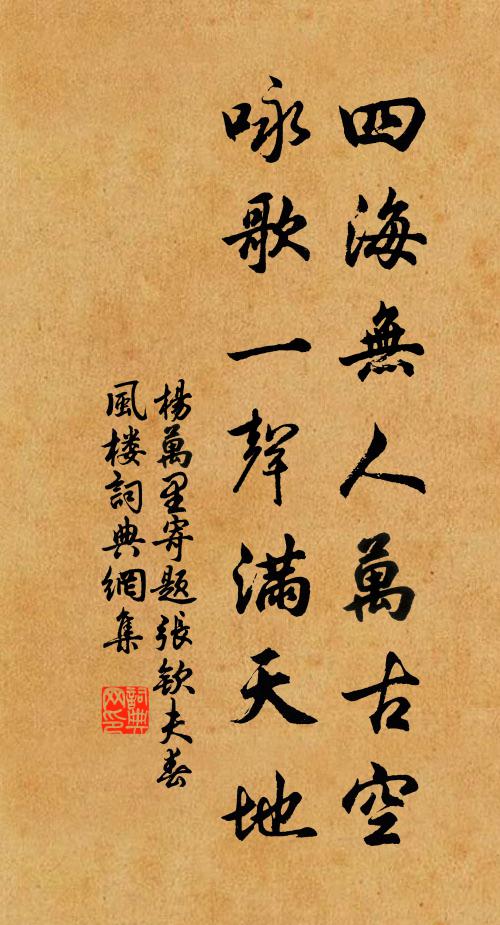 四海無人萬古空
咏歌一聲滿天地
楊萬里寄題張欽夫春
風楼詞典網集
詞典
网印